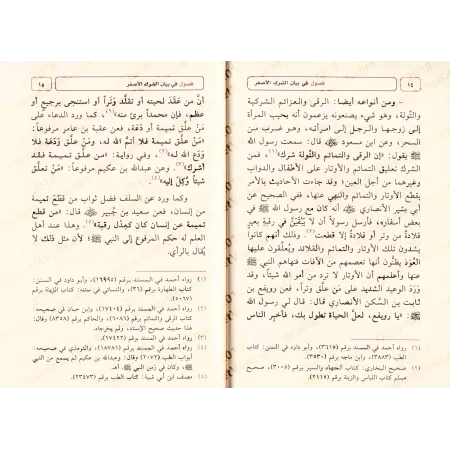 ١٤ فصول في بيان الشرك الأصغر
- ومن أنواعه أيضا: الرقى والعزائم الشركية
والتولة، وهو شيء يصنعونه يزعمون أنه يحبب المرأة
إلى زوجها والرجل إلى امرأته، وهو ضرب من
السحر، وعن ابن مسعود قال: سمعت رسول الله
ﷺ يقول: «إن الرقى والتمائم والتولة شرك»(١)، فمن
الشرك تعليق التمائم والأوتار على الأطفال والدواب
وغيرهما من أجل العين، وقد جاءت الأحاديث بالأمر
بقطع الأوتار والتمائم والنهي عنها، ففي الصحيح عن
أبي بشير الأنصاري أنه كان مع رسول الله ﷺ في
بعض أسفاره، فأرسل رسولاً أن لا يَبْقَيَنَّ في رقبة بعير
قلادةٌ من وتر أو قلادةٌ إلا قطعت(٢). وذلك أنهم كانوا
يشدون تلك الأوتار والتمائم والقلائد ويُعلّقون عليها
العُوَذ يظنون أنها تعصمهم من الآفات فنهاهم النبي ﷺ
عنها وأعلمهم أن الأوتار لا ترد من أمر الله شيئاً، وقد
وَرَدَ الوعيد الشديد على مَن علَّق وتراً، فعن رويفع بن
ثابت بن السَّكن الأنصاري قال: قال لي رسول الله
ﷺ: «يا رويفع، لعلَّ الحياة تطول بك، فأخبر الناس
(١) رواه أحمد في المسند برقم (٣٦١٥)، وأبو داود في السنن: كتاب
الطب (٣٨٨٣)، وابن ماجه برقم (٣٥٣٠).
(٢) صحيح البخاري: كتاب الجهاد والسير برقم (٣٠٠٥)، صحيح
مسلم كتاب اللباس والزينة برقم (٢١١٥).
فصول في بيان الشرك الأصغر ١٥
أنَّ من عَقَدَ لحيته أو تقلَّد وَتَراً أو استنجى برجيع أو
عظم، فإن محمداً برئ منه»(١)، كما ورد الدعاء على
مَنْ علَّق تميمة أو وَدَعَة، فعن عقبة بن عامر مرفوعاً:
«مَنْ علَّق تميمة فلا أتمَّ الله له، ومن علَّق وَدَعَة فلا
وَدَع الله له»(٢)، وفي رواية: «من علَّق تميمة فقد
أشرك»(٣). وعن عبدالله بن عكيم مرفوعاً: «مَنْ تعلَّق
شيئاً وُكِلَ إليه»(٤).
وكما ورد عن السلف فضل ثواب من قَطَعَ تميمة
من إنسان، فعن سعيد بن جُبير قال: «من قطع
تميمة عن إنسان كان كعِدْل رقبة»(٥). وهذا عند أهل
العلم له حكم المرفوع إلى النبي ﷺ لأن مثل ذلك لا
يُقال بالرأي.
(١) رواه أحمد في المسند برقم (١٦٩٩٥)، وأبو داود في السنن:
كتاب الطهارة برقم (٣٦)، والنسائي في سننه: كتاب الزينة برقم
(٥٠٦٧).
(٢) رواه أحمد في المسند برقم (١٧٤٠٤)، وابن حبان في صحيحه:
كتاب الرقى والتمائم برقم (٦٠٨٦)، والحاكم برقم (٨٣٥٨) وقال:
هذا حديث صحيح الإسناد، ولم يخرجاه.
(٣) رواه أحمد في المسند برقم (١٧٤٢٢).
(٤) رواه أحمد في المسند برقم (١٨٧٨١)، والترمذي في صحيحه:
أبواب الطب (٢٠٧٢) وقال: وعبدالله بن عكيم لم يسمع من النبي
ﷺ، وكان في زمن النبي ﷺ. اهـ.
(٥) مصنف ابن أبي شيبة: كتاب الطب برقم (٢٣٤٧٣).